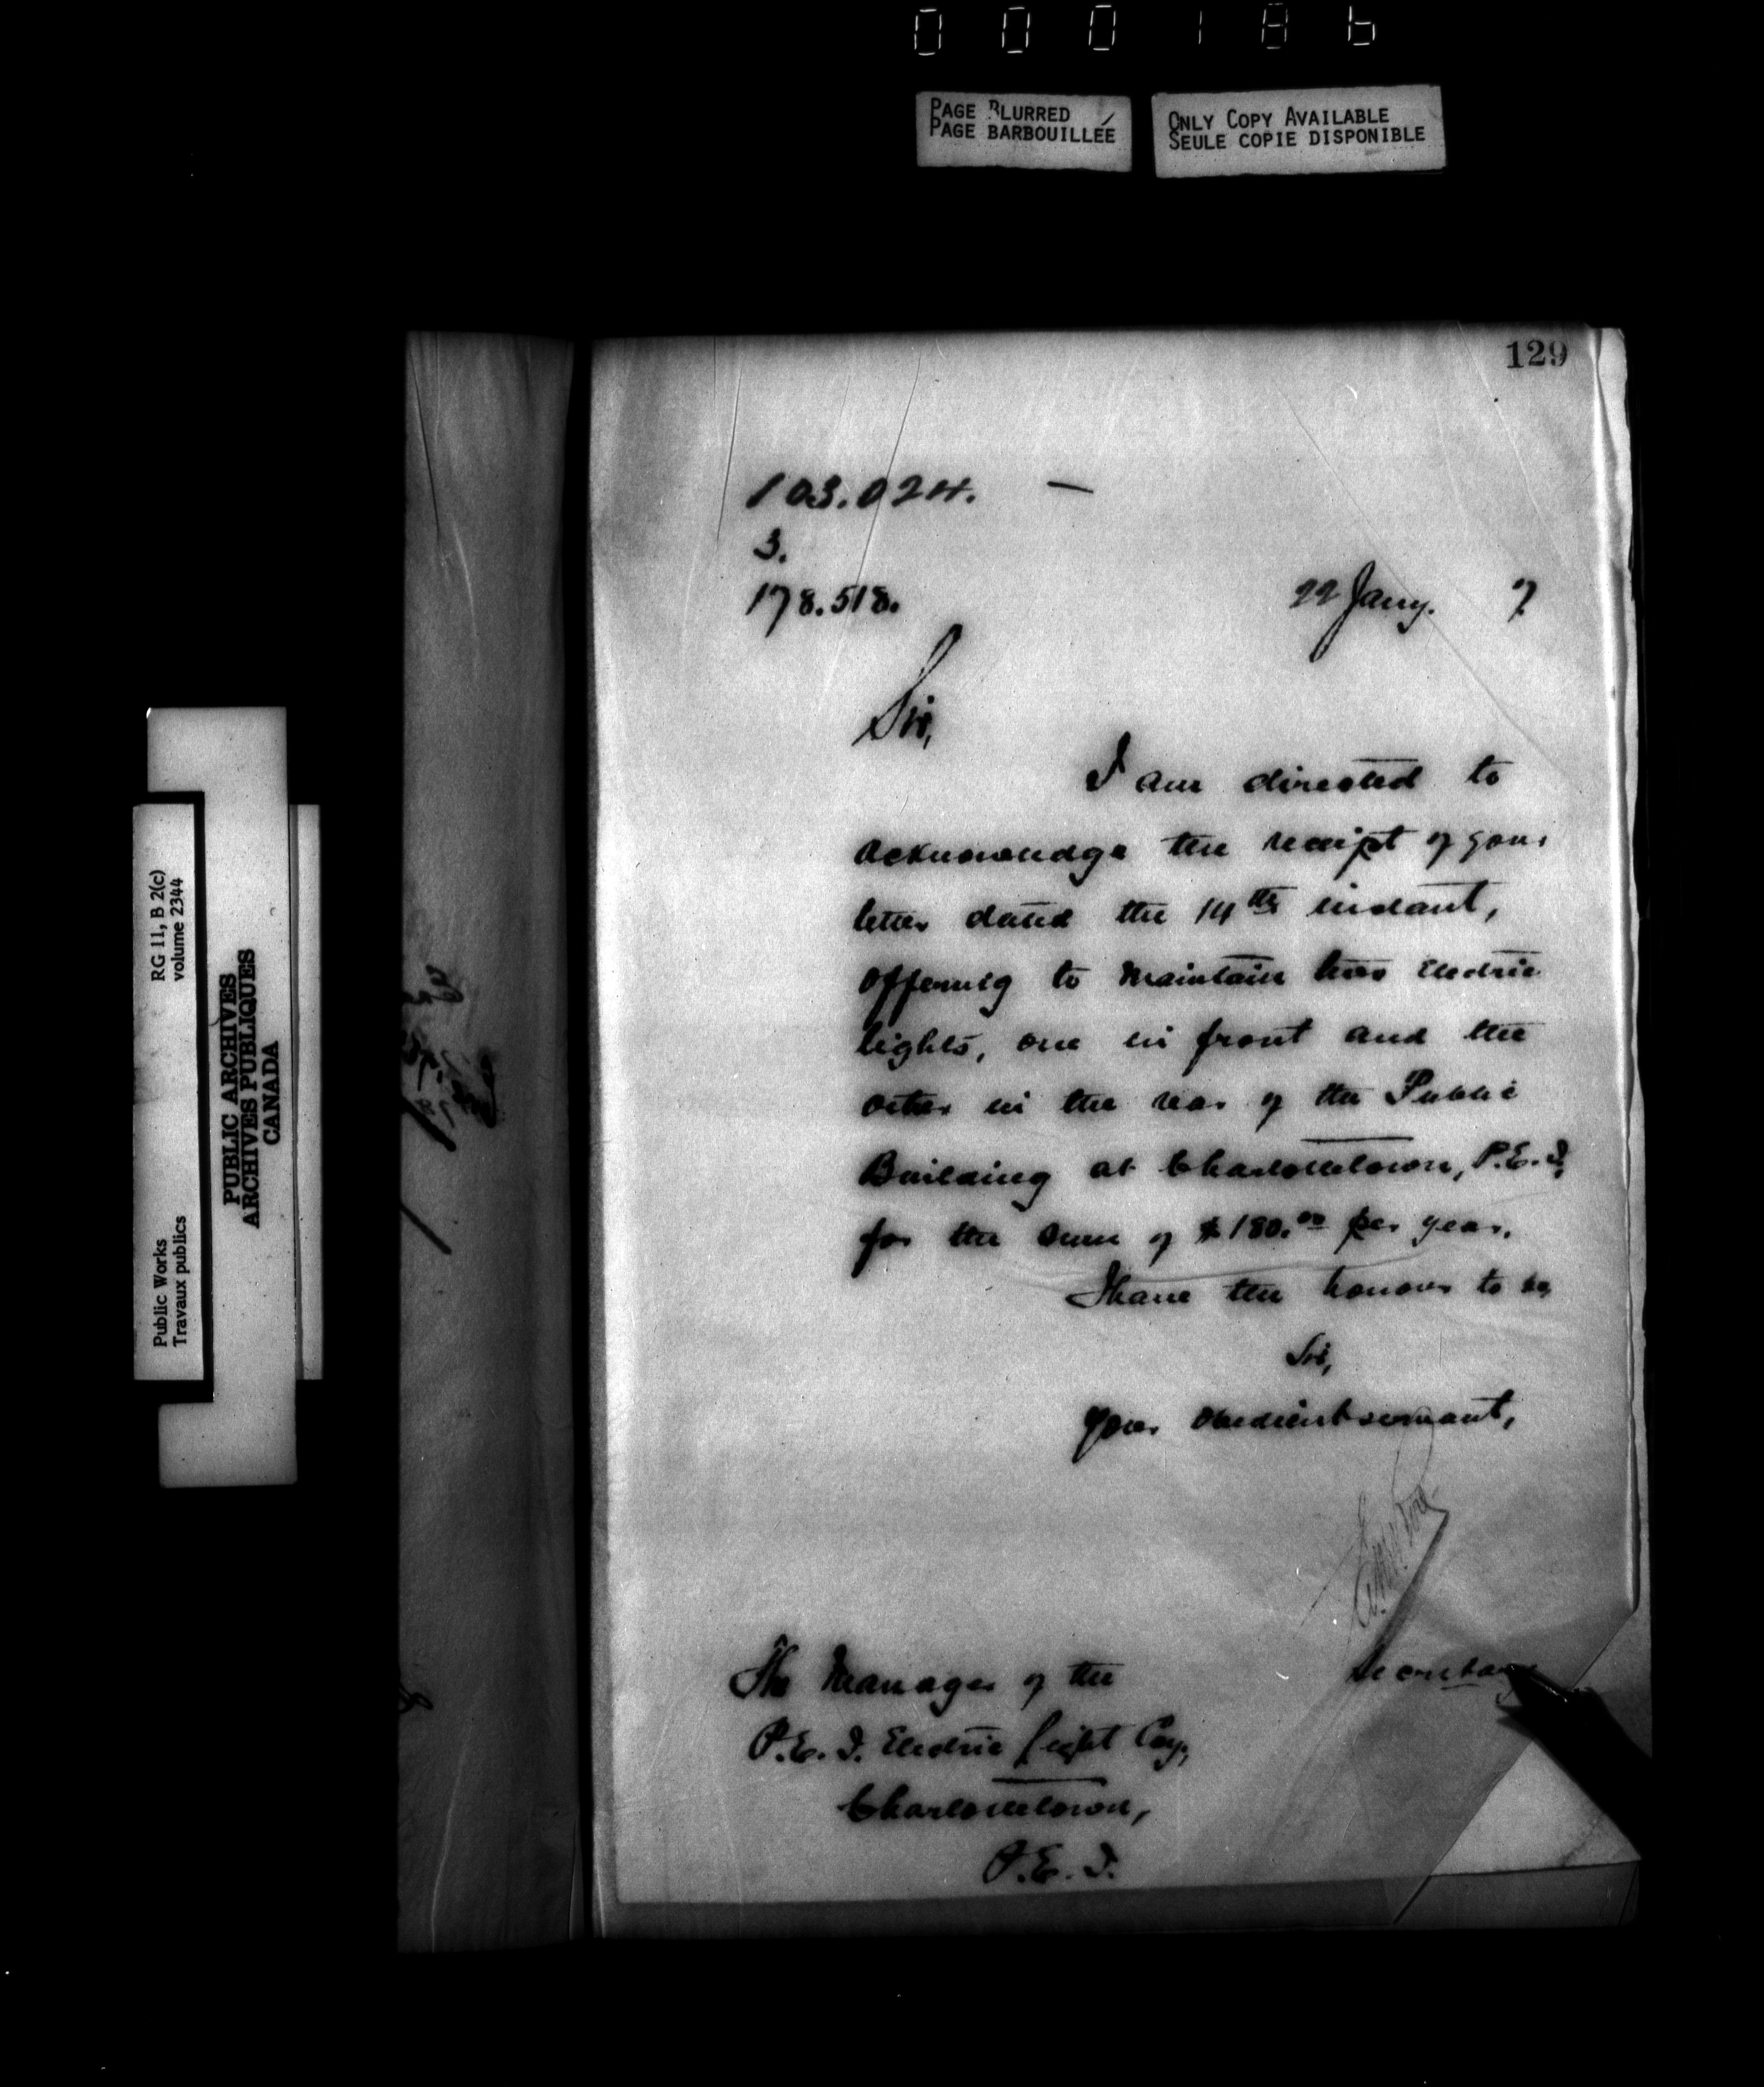 000186
PAGE BLURRED
PAGE BARBOUILLÉE
ONLY COPY AVAILABLE
SEULE COPIE DISPONIBLE
RG 11, B 2(c)
volume 2344
Public Works
Travaux publics
PUBLIC ARCHIVES
ARCHIVES PUBLIQUES
CANADA
129
103.024. —
3.
178.518.
22 Jany. 7
Sir,
I am directed to
acknowledge the receipt of your
letter dated the 14th instant,
offering to maintain two Electric
lights, one in front and the
other in the rear of the Public
Building at Charlottetown, P.E.I,
for the sum of $180.00 per year.
I have the honour to be,
Sir,
Your obedient servant,
Secretary
The Manager of the
P.E.I. Electric Light Coy.,
Charlottetown,
P.E.I.